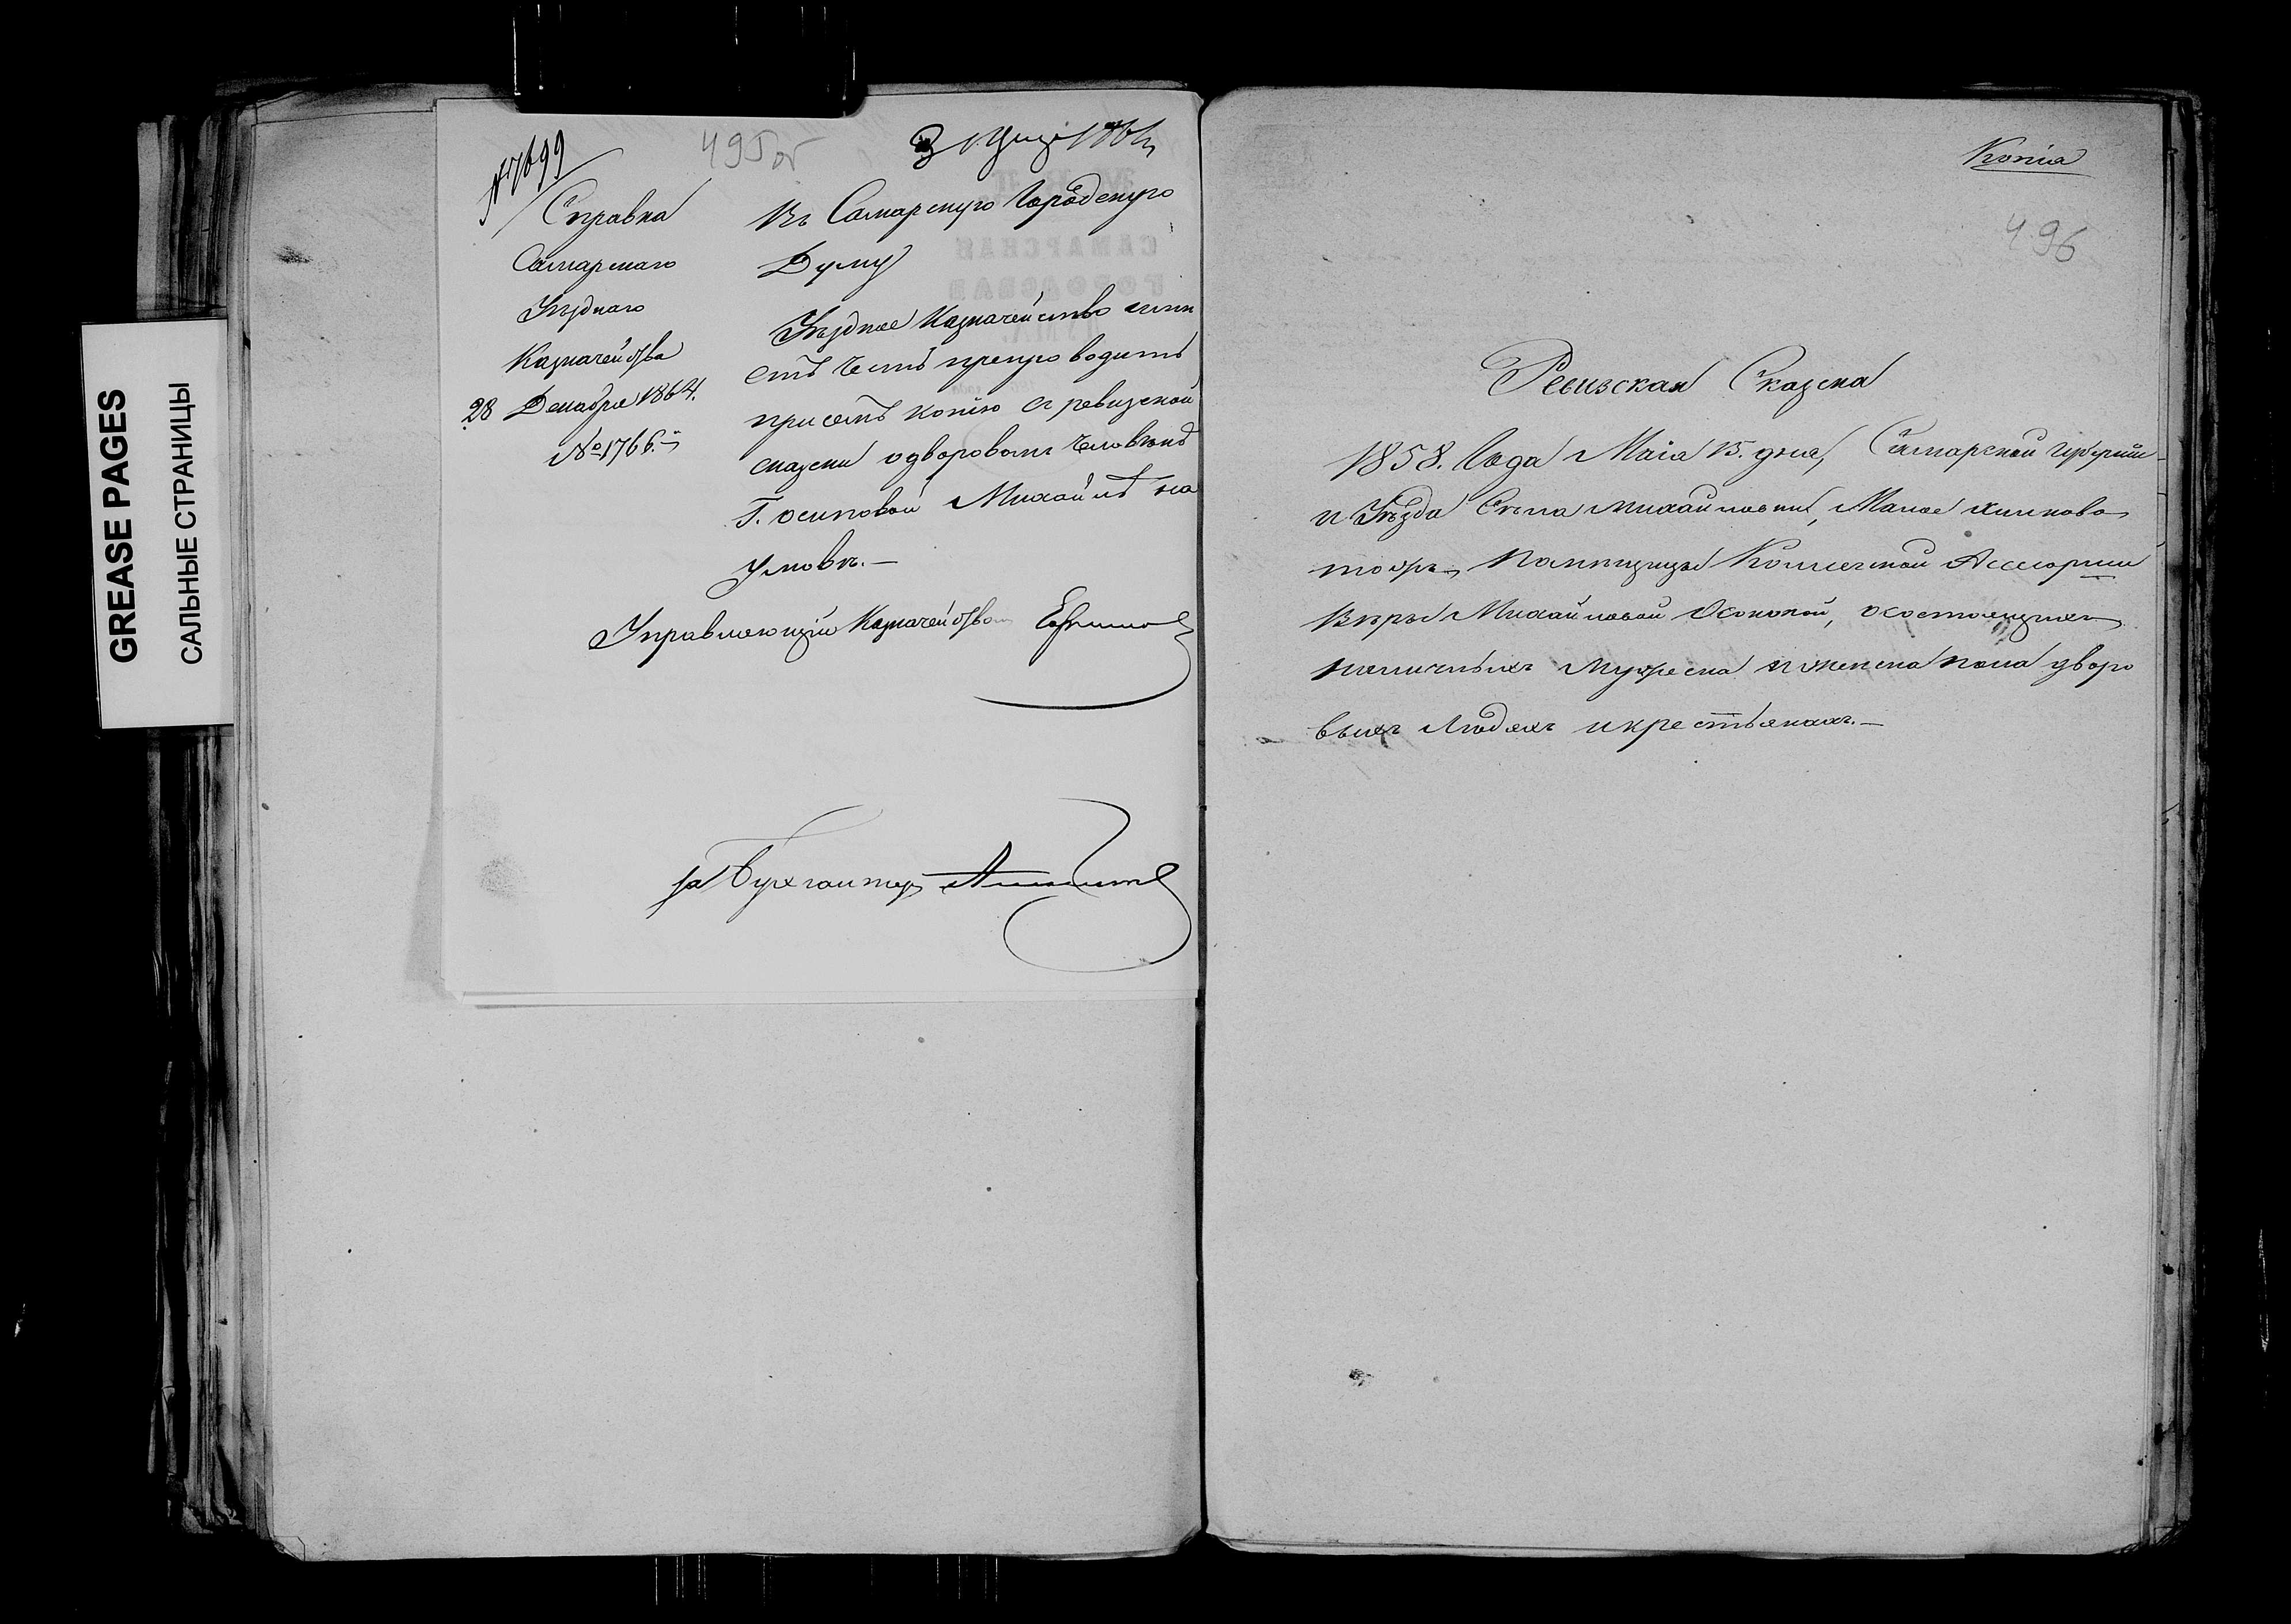 GREASE PAGES
САЛЬНЫЕ СТРАНИЦЫ
№ 7699
495 об
Справка
Самарскаго
Уѣзднаго
Казначейства
28 Декабря 1864.
№ 1766.
Въ Самарскую Городскую
Думу
Уѣздное Казначейство имѣ
етъ честь препроводить
при семъ копію съ ревизской
сказки о дворовомъ человѣкѣ
Г. Осиповой Михайлѣ
Управляющій Казначействомъ
за Бухгалтера
Копія
496
Ревизская Сказка
1858. Года Маія 15. дня, Самарской губерніи
и Уѣзда Села Михайловки, Малое
тожъ, Помѣщицы Коллежской Ассесорши
Вѣры Михайловой Осиповой, о состоящихъ
наличныхъ мужеска и женска пола дворо
выхъ людяхъ и крестьянахъ.